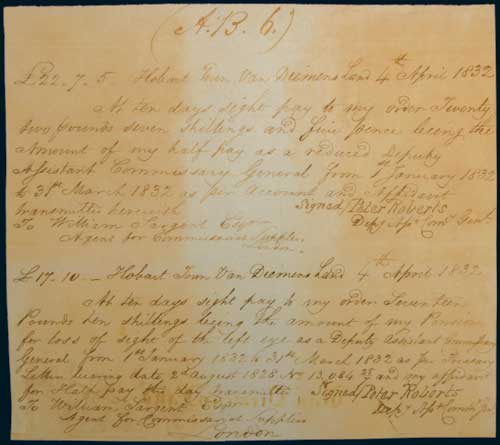 (A. B. 6.)
£22. 7. 5. Hobart Town Van Diemens Land 4th April 1832
At ten days sight pay to my order Twenty
two pounds seven shillings and five pence being the
Amount of my half pay as a reduced Deputy
Assistant Commissary General from 1st January 1832
to 31st March 1832 as per Account and Affidavit
transmitted herewith Signed Peter Roberts
To William Sargent Esqr Depy Asst Comy Genl
Agent for Commissariat Supplies
London
£17. 10 — Hobart Town Van Diemens Land 4th April 1832
At ten days sight pay to my order Seventeen
Pounds ten shillings being the amount of my Pension
for loss of sight of the left eye as a Deputy Assistant
General from 1st January 1832 to 31st March 1832 as per Treasury
Letter bearing date 2nd August 1828 No 13,064 and my affidavit
for Half Pay this day transmitted Signed Peter Roberts
To William Sargent Esqr Depy Asst
Agent for Commissariat Supplies
London